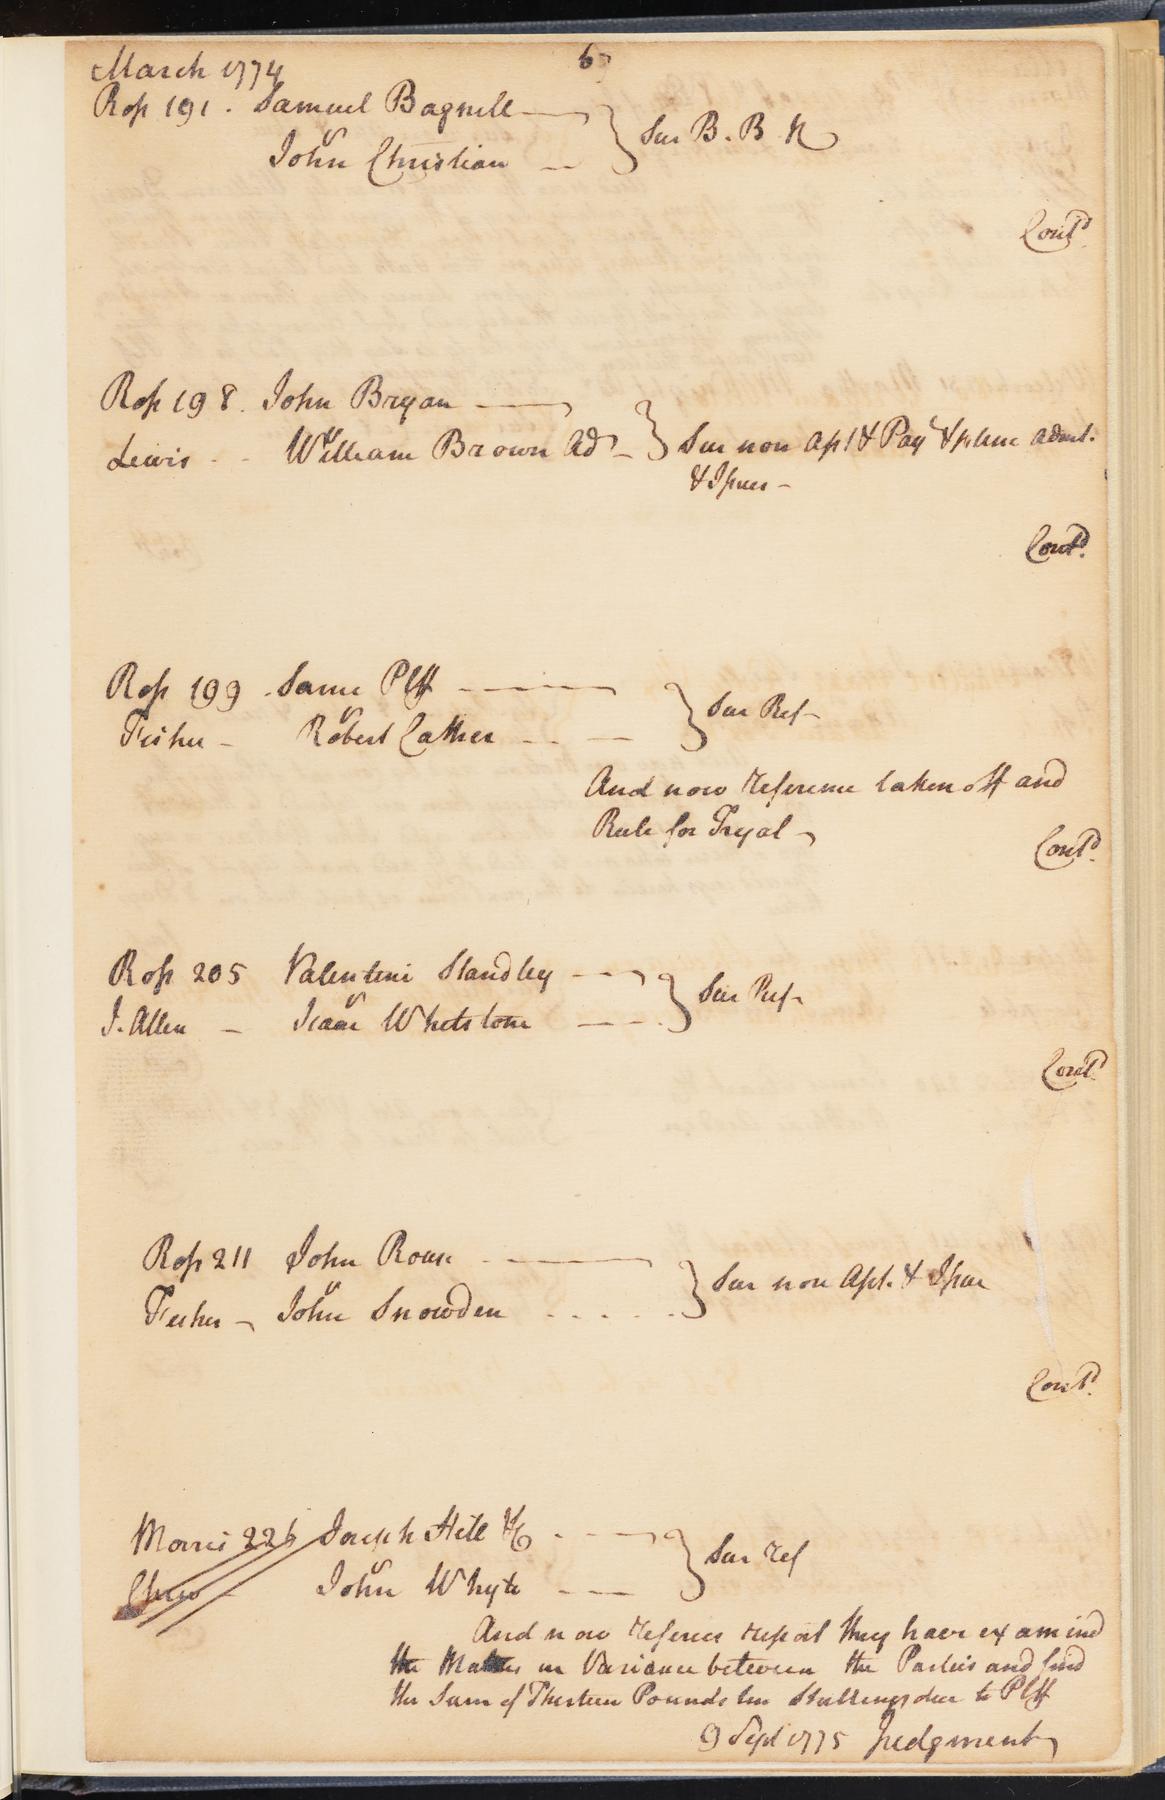 March 1774
67
Ross 191. Samuel Bagnell
v
John Christian
Sur B. B. N
Cont.d
Ross 198. John Bryan
Lewis
v
William Brown Ad.
Sur non Ass.t & Pay.t & plene admt.
& Issues
Cont.d
Ross 199. Same Plff
Fisher
v
Robert Cather
Sur Ref
And now reference taken off and
Rule for Tryal
Cont.d
Ross 205 Valentine Standley
J. Allen
v
Isaac Whetstone
Sur Ref
Cont.d
Ross 211 John Rouse
Fisher
v
John Snowden
Sur non Asst. & Issue
Cont.d
Morris 226 Joseph Hill &c
Chew
v
John Whyte
Sur ref
And now referees report they have examined
the Matters in Variance between the Parties and find
the Sum of Thirteen Pounds ten Shillings due to Plff
9 Sept 1775 Judgment